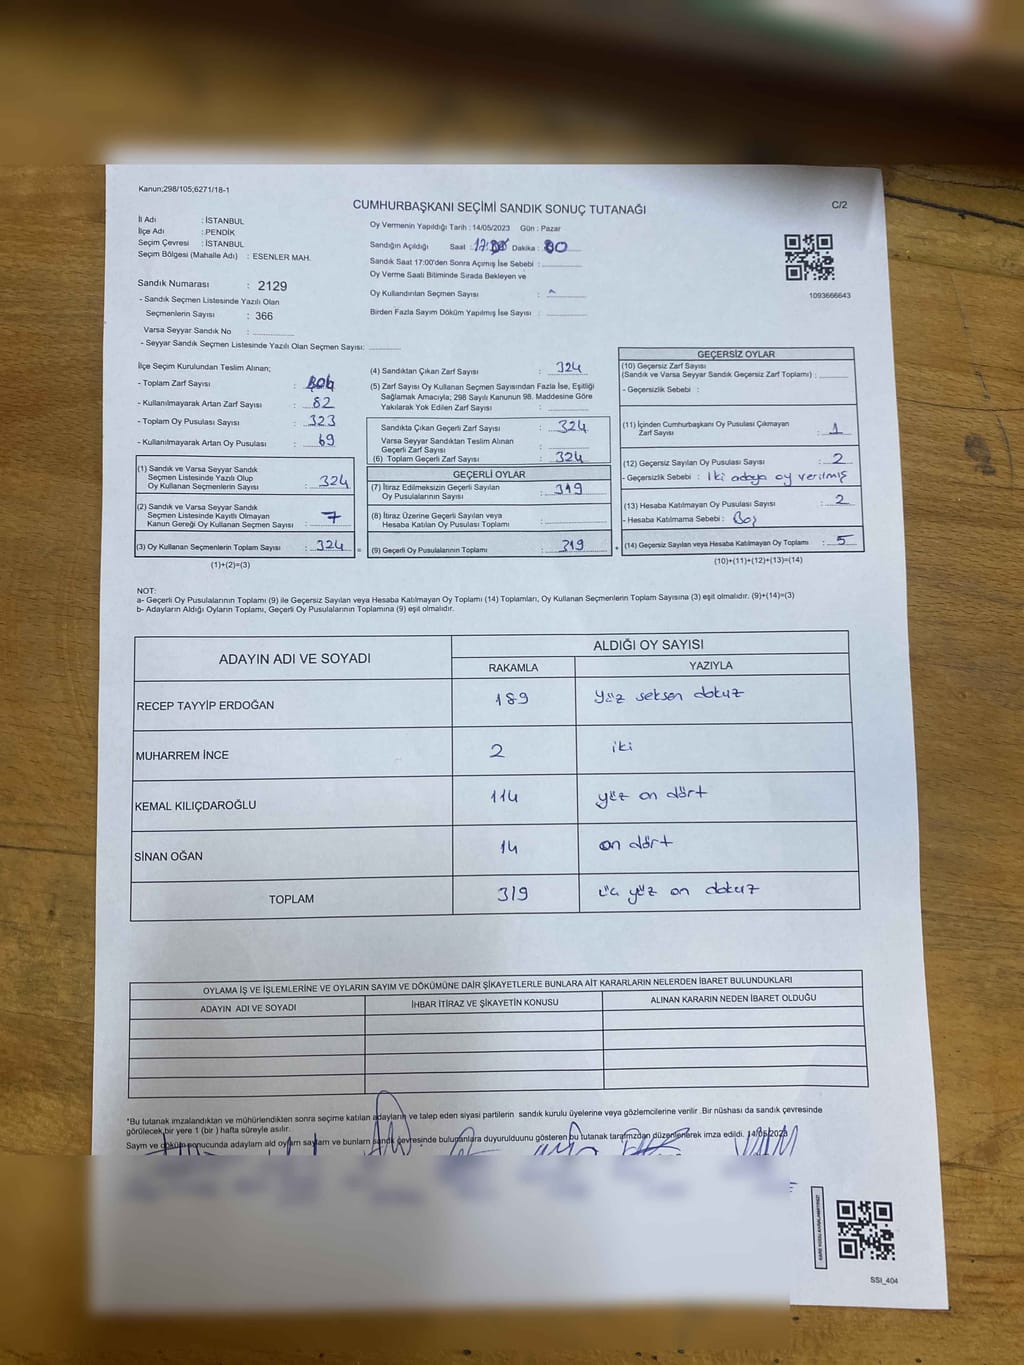 Kanun;298/105;6271/18-1
CUMHURBAŞKANI SEÇİMİ SANDIK SONUÇ TUTANAĞI
C/2
İl Adı : İSTANBUL
İlçe Adı : PENDİK
Seçim Çevresi : İSTANBUL
Seçim Bölgesi (Mahalle Adı) : ESENLER MAH.
Sandık Numarası : 2129
- Sandık Seçmen Listesinde Yazılı Olan
Seçmenlerin Sayısı : 366
Varsa Seyyar Sandık No :
- Seyyar Sandık Seçmen Listesinde Yazılı Olan Seçmen Sayısı:
Oy Vermenin Yapıldığı Tarih : 14/05/2023 Gün : Pazar
Sandığın Açıldığı Saat : Dakika :
Sandık Saat 17:00'den Sonra Açımış İse Sebebi :
Oy Verme Saati Bitiminde Sırada Bekleyen ve
Oy Kullandırılan Seçmen Sayısı :
Birden Fazla Sayım Döküm Yapılmış İse Sayısı :
1093666643
İlçe Seçim Kurulundan Teslim Alınan;
- Toplam Zarf Sayısı :
- Kullanılmayarak Artan Zarf Sayısı : 82
- Toplam Oy Pusulası Sayısı : 323
- Kullanılmayarak Artan Oy Pusulası : 69
(1) Sandık ve Varsa Seyyar Sandık
Seçmen Listesinde Yazılı Olup
Oy Kullanan Seçmenlerin Sayısı : 324
(2) Sandık ve Varsa Seyyar Sandık
Seçmen Listesinde Kayıtlı Olmayan
Kanun Gereği Oy Kullanan Seçmen Sayısı : 7
(3) Oy Kullanan Seçmenlerin Toplam Sayısı : 324 =
(1)+(2)=(3)
(4) Sandıktan Çıkan Zarf Sayısı : 324
(5) Zarf Sayısı Oy Kullanan Seçmen Sayısından Fazla İse, Eşitliği
Sağlamak Amacıyla; 298 Sayılı Kanunun 98. Maddesine Göre
Yakılarak Yok Edilen Zarf Sayısı :
Sandıkta Çıkan Geçerli Zarf Sayısı : 324
Varsa Seyyar Sandıktan Teslim Alınan
Geçerli Zarf Sayısı :
(6) Toplam Geçerli Zarf Sayısı : 324
GEÇERLİ OYLAR
(7) İtiraz Edilmeksizin Geçerli Sayılan
Oy Pusulalarının Sayısı : 319
(8) İtiraz Üzerine Geçerli Sayılan veya
Hesaba Katılan Oy Pusulası Toplamı :
(9) Geçerli Oy Pusulalarının Toplamı : 319 +
GEÇERSİZ OYLAR
(10) Geçersiz Zarf Sayısı
(Sandık ve Varsa Seyyar Sandık Geçersiz Zarf Toplamı) :
- Geçersizlik Sebebi :
(11) İçinden Cumhurbaşkanı Oy Pusulası Çıkmayan
Zarf Sayısı : 1
(12) Geçersiz Sayılan Oy Pusulası Sayısı : 2
- Geçersizlik Sebebi : İki adaya oy verilmiş
(13) Hesaba Katılmayan Oy Pusulası Sayısı : 2
- Hesaba Katılmama Sebebi : Boş
(14) Geçersiz Sayılan veya Hesaba Katılmayan Oy Toplamı : 5
(10)+(11)+(12)+(13)=(14)
NOT:
a- Geçerli Oy Pusulalarının Toplamı (9) ile Geçersiz Sayılan veya Hesaba Katılmayan Oy Toplamı (14) Toplamları, Oy Kullanan Seçmenlerin Toplam Sayısına (3) eşit olmalıdır. (9)+(14)=(3)
b- Adayların Aldığı Oyların Toplamı, Geçerli Oy Pusulalarının Toplamına (9) eşit olmalıdır.
ADAYIN ADI VE SOYADI ALDIĞI OY SAYISI
RAKAMLA YAZIYLA
RECEP TAYYİP ERDOĞAN 189 yüz seksen dokuz
MUHARREM İNCE 2 iki
KEMAL KILIÇDAROĞLU 114 yüz on dört
SİNAN OĞAN 14 on dört
TOPLAM 319 üç yüz on dokuz
OYLAMA İŞ VE İŞLEMLERİNE VE OYLARIN SAYIM VE DÖKÜMÜNE DAİR ŞİKAYETLERLE BUNLARA AİT KARARLARIN NELERDEN İBARET BULUNDUKLARI
ADAYIN ADI VE SOYADI İHBAR İTİRAZ VE ŞİKAYETİN KONUSU ALINAN KARARIN NEDEN İBARET OLDUĞU
*Bu tutanak imzalandıktan ve mühürlendikten sonra seçime katılan adayların ve talep eden siyasi partilerin sandık kurulu üyelerine veya gözlemcilerine verilir .Bir nüshası da sandık çevresinde
görülecek bir yere 1 (bir ) hafta süreyle asılır.
Sayım ve döküm sonucunda adayların ald oyların saylam ve bunların sandık çevresinde bulunanlara duyurulduunu gösteren bu tutanak tarafmzdan düzenlenerek imza edildi. 14/05/2023
SSI_404